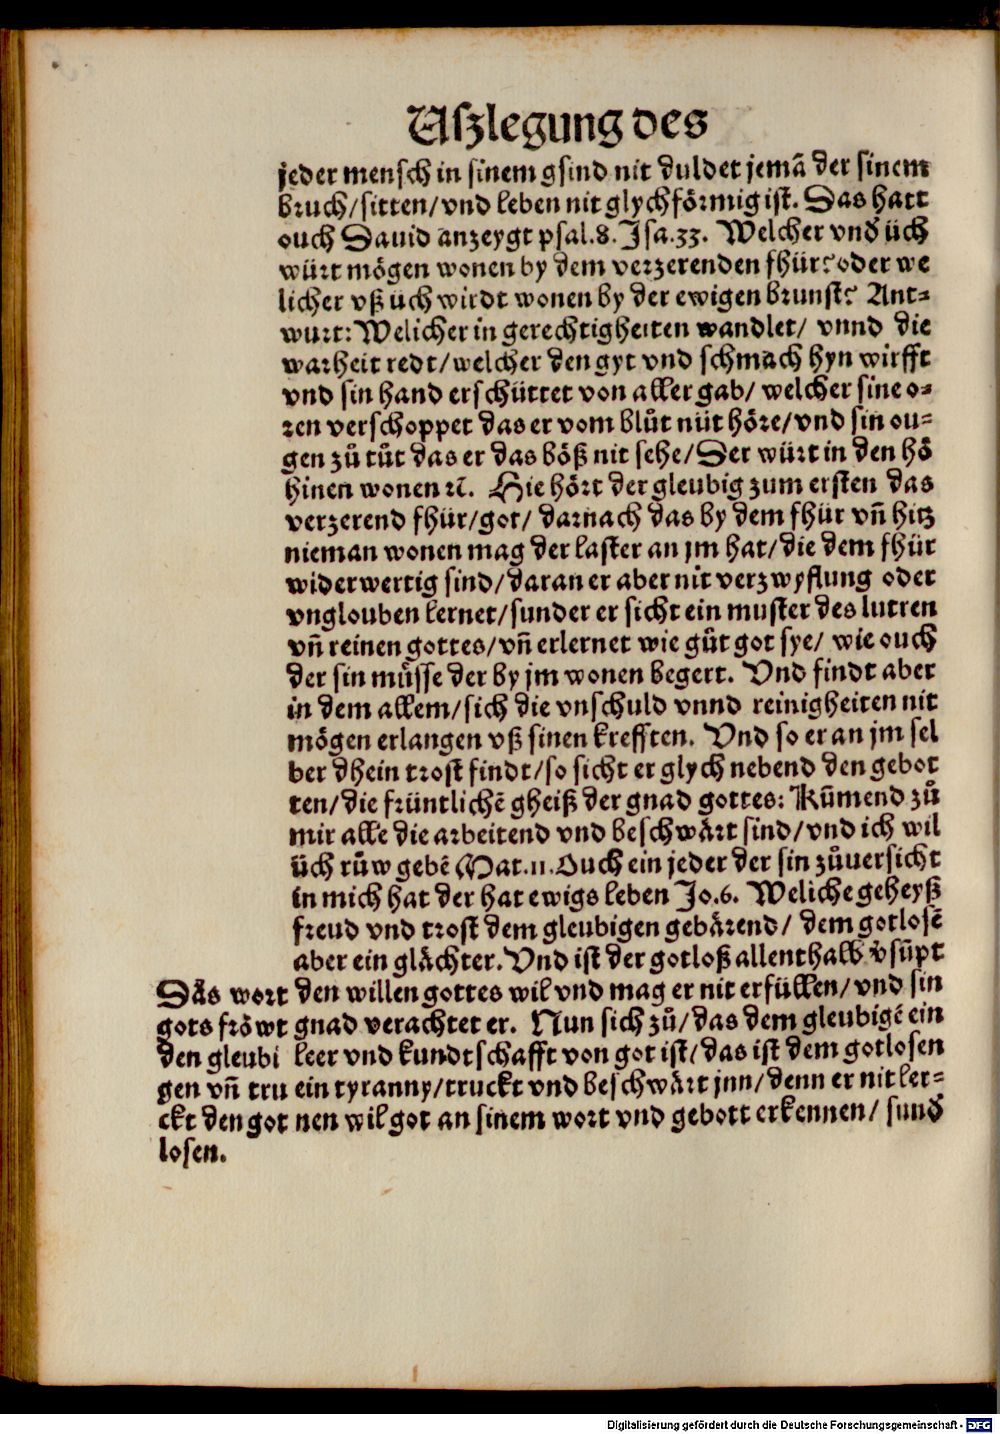 Uſzlegung des
jeder menſch in ſinem gſind nit duldet jemā der ſinem
bruch/ſitten/vnd leben nit glychförmig iſt. Das hatt
ouch Dauid anzeygt pſal.8. Iſa.33. Welcher vnd̕ üch
würt mögen wonen by dem verzerenden fhür? oder we
licher vß üch wirdt wonen by der ewigen brunſt? Ant⸗
wurt: Welicher in gerechtigheiten wandlet/ vnnd die
warheit redt/welcher den gyt vnd ſchmach hyn wirfft
vnd ſin hand erſchüttet von aller gab/ welcher ſine o⸗
ren verſchoppet das er vom blůt nüt höre/vnd ſin ou⸗
gen zů tůt das er das böß nit ſehe/Der würt in den hö
hinen wonen ꝛc̄. Hie hört der gleubig zum erſten das
verzerend fhür/got/ darnach das by dem fhür vn̄ hitz
nieman wonen mag der laſter an jm hat/die dem fhür
widerwertig ſind/daran er aber nit verzwyflung oder
vnglouben lernet/ſunder er ſicht ein muſter des lutren
vn̄ reinen gottes/vn̄ erlernet wie gůt got ſye/ wie ouch
der ſin müſſe der by jm wonen begert. Vnd findt aber
in dem allem/ſich die vnſchuld vnnd reinigheiten nit
mögen erlangen vß ſinen krefften. Vnd ſo er an jm ſel
ber dhein troſt findt/ſo ſicht er glych nebend den gebot
ten/die früntlichē gheiß der gnad gottes: Kūmend zů
mir alle die arbeitend vnd beſchwärt ſind/vnd ich wil
üch růw gebē Mat.11. Ouch ein jeder der ſin zůuerſicht
in mich hat der hat ewigs leben Jo.6. Weliche geheyß
freud vnd troſt dem gleubigen gebärend/ dem gotloſē
aber ein glächter. Vnd iſt der gotloß allenthalb v̕ſūpt
den willen gottes wil vnd mag er nit erfüllen/ vnd ſin
gnad verachtet er. Nun ſich zů/das dem gleubigē ein
leer vnd kundtſchafft von got iſt/das iſt dem gotloſen
ein tyranny/truckt vnd beſchwärt jnn/denn er nit ler⸗
nen wil got an ſinem wort vnd gebott erkennen/ ſund̕
Das wort
gots fröwt
den gleubi
gen vn̄ tru
ckt den got
loſen.
Digitalisierung gefördert durch die Deutsche Forschungsgemeinschaft - DFG